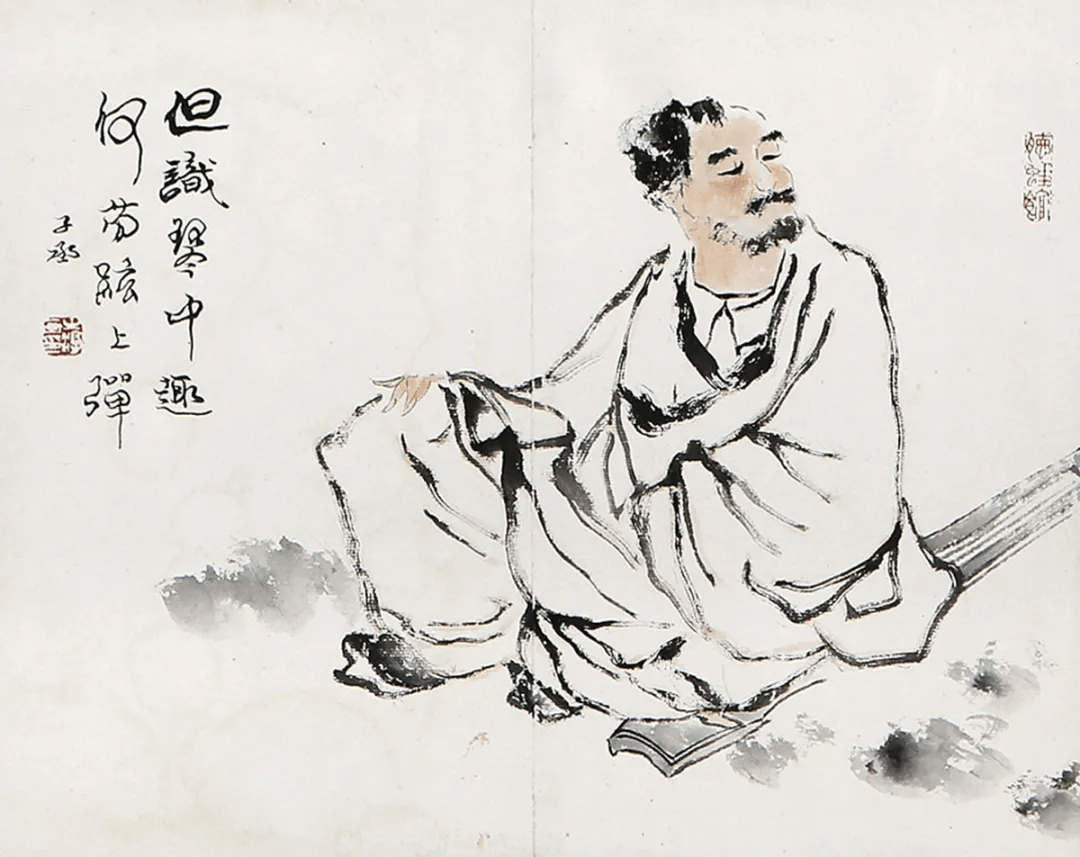 但識琴中趣
何勞絃上彈
子丞